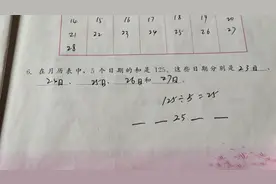 14 15 16 17 18 19 20
21 22 23 24 25 26 27
28
6. 在月历表中,5个日期的和是125,这些日期分别是23日、
24日、25日、26日和27日。
125÷5=25
— — 25 — —